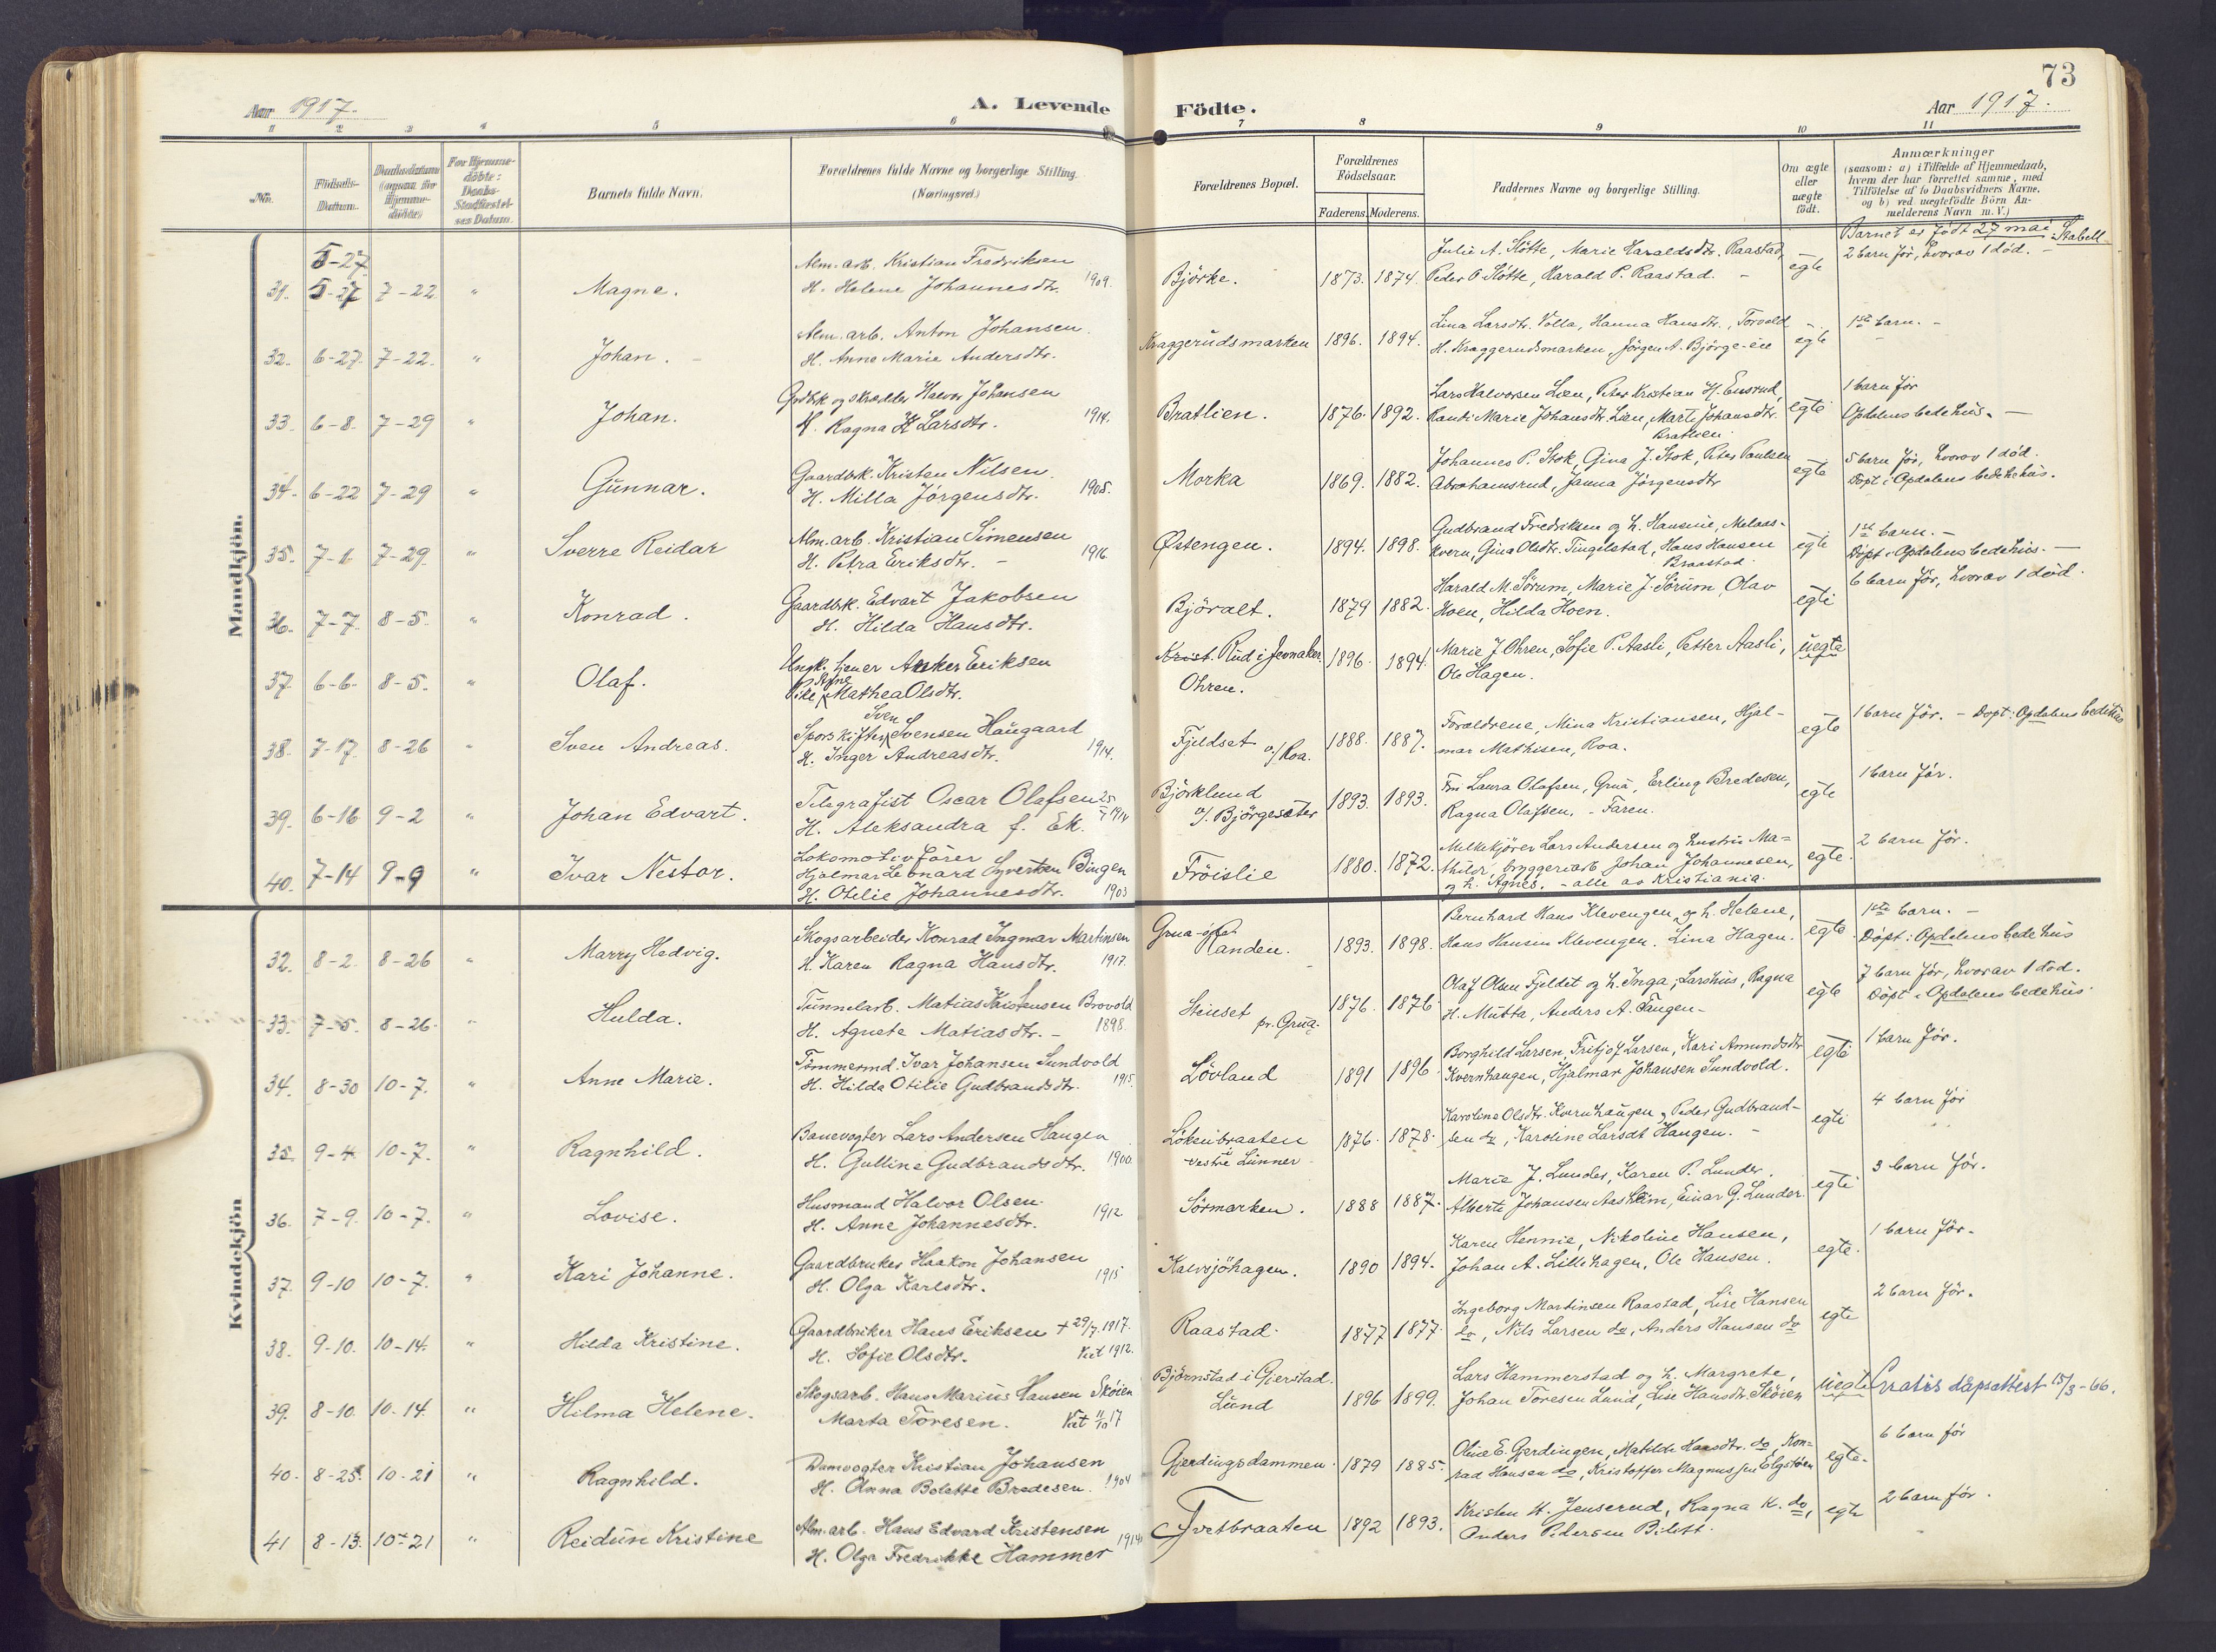 73
Aar 1917.
A. Levende Födte.
Aar 1917.
1 2 3 4 5 6 7 8 9 10 11
No.
Födsels-Datum.
Daabsdatum (ogsaa for Hjemme-döbte)
For Hjemme-döbte: Daabs-Stadfæstel-ses Datum.
Barnets fulde Navn.
Forældrenes fulde Navne og borgerlige Stilling. (Næringsvei.)
Forældrenes Bopæl.
Forældrenes Födselsaar.
Faderens. Moderens.
Faddernes Navne og borgerlige Stilling.
Om ægte eller uægte födt.
Anmærkninger
(saasom: a) i Tilfælde af Hjemmedaab, hvem der har forrettet samme, med Tilföielse af to Daabsvidners Navne. og b) ved uægtefödte Börn An-melderens Navn m. V.)
Mandkjön.
Barnet er født 27 mai. Stabell.
5-27
31. 5-27 7-22 " Magne.
Alm. arb. Kristian Fredriksen
H. Helene Johannesdtr. 1909.
Björke. 1873. 1874.
Julie A. Slötte, Marie Haraldsdtr. Raastad,
Peder O. Slötte, Harald P. Raastad. -
egte
2 barn för, hvorav 1 död. -
32. 6-27. 7-22. " Johan. -
Alm. arb. Anton Johansen.
H. Anne Marie Andersdtr.
Kraggerudsmarken 1896. 1894.
Lina Larsdtr. Volla, Hanna Hansdtr., Torvald
H. Kraggerudsmarken, Jörgen A. Björge-eie
egte
1ste barn. -
33. 6-8. 7-29 " Johan.
Grdbk og skrædder Halvor Johansen
H. Ragna H Larsdtr. 1914.
Bratlien. 1876. 1892.
Lars Halvorsen Lien, Peter Kristian H. Ensrud,
Randi Marie Johansdtr. Lien, Marte Johansdtr.
Bratlien
egte
1 barn för
Opdalens bedehus. -
34. 6-22 7-29 " Gunnar.
Gaardbk. Kristen Nilsen
H. Milla Jörgensdtr. 1905.
Morka 1869. 1882.
Johannes P. Stok, Gina J. Stok, Peter Paulsen
Abrahamsrud, Janna Jörgensdtr
egte
5 barn för, hvorav 1 död.
Döpt i Opdalens bedehus.
35. 7-1. 7-29. " Sverre Reidar
Alm. arb. Kristian Simensen
H. Petra Eriksdtr. - 1916
Østengen. 1894. 1898.
Gudbrand Fredriksen og h. Hansine, Melaas-
kvern, Gina Olsdtr. Tingelstad, Hans Hansen
Braastad.
egte
1st barn. -
Döpt i Opdalens bedehus. -
36. 7-7. 8-5. " Konrad.
Gaardbk. Edvart Jakobsen
H. Hilda Hansdtr.
Björalt. 1879 1882.
Harald M. Sörum, Marie J. Sörum, Olav
Hoen, Hilda Hoen.
egte
6 barn för, hvorav 1 död.
37. 6-6. 8-5. " Olaf.
Ungk. tjener Anker Eriksen
Pike Mathea Olsdtr.
Krist. Rud i Jevnaker
Ohren.
1896. 1894.
Marie J. Ohren, Sofie P. Aasli, Petter Aasli,
Ole Hagen.
uegte
38. 7-17. 8-26 " Sven Andreas.
Sven
Sporskifter Svensen Haugaard
H. Inger Andreasdtr. 1914.
Fjeldset v/ Roa. 1888. 1887.
Forældrene, Mina Kristiansen, Hjal-
mar Mathisen, Roa.
egte
1 barn för. - Döpt i Opdalens bedehus
39. 6-16 9-2 " Johan Edvart.
Telegrafist Oscar Olafsen 25/7 1914
H. Aleksandra f. Ek.
Björklund
v/. Björgesæter
1893. 1893.
Fru Laura Olafsen, Grua, Erling Bredesen,
Ragna Olafsen, - Faren.
egte
1 barn för.
40. 7-14 9-9 " Ivar Nestor.
Lokomotivförer
Hjalmar Leonard Syversen Bingen
H. Otilie Johannesdtr. 1903
Fröislie 1880. 1872.
Melkekjörer Lars Andersen og hustru Ma-
thilde, bryggeriarb. Johan Johannesen,
og h. Agnes. - alle av Kristiania.
egte.
2 barn för.
Kvindekjön
32. 8-2. 8-26 " Marry Hedvig.
Skogsarbeider Konrad Ingmar Martinsen
H. Karen Ragna Hansdtr. 1917.
Randen. 1893. 1898.
Bernhard Hans Klevengen og h. Helene,
Hans Hansen Klevengen. Lina Hagen.
egte.
1ste barn. -
Döpt i Opdalens bedehus
33. 7-5. 8-26. " Hulda.
Tunnelarb. Matias Kristensen Brovold
H. Agnete Matiasdtr. - 1898.
Steiset pr. Grua. 1876. 1876.
Olaf Olsen Fjeldet og h. Inga, Larshus, Ragna
H. Mutta, Anders A. Tangen-
egte
7 barn för, hvorav 1 död.
Döpt i Opdalens bedehus.
34. 8-30 10-7. " Anne Marie.
Tömmermd. Ivar Johansen Sundvold
H. Hilda Otilie Gudbrandsdtr. 1915.
Lövland 1891 1896.
Borghild Larsen, Fritjof Larsen, Kari Amundsdtr
Kvernhaugen, Hjalmar Johansen Sundvold.
egte
1 barn för.
35. 9-4. 10-7. " Ragnhild.
Banevogter Lars Andersen Haugen
H. Gulline Gudbrandsdtr. 1900.
Lökenbraaten
vestre Lunner
1876. 1878.
Karoline Olsdtr. Kvernhaugen, Peder Gudbrand-
sen do, Karoline Larsdt Haugen. -
egte
4 barn för
36. 7-9. 10-7. " Lovise.
Husmand Halvor Olsen.
H. Anne Johannesdtr. 1912
Sörmarken. 1888 1887.
Marie J. Lunder, Karen P. Lunder.
Alberte Johansen Aasheim, Einar G. Lunder.
egte
3 barn för.
37. 9-10 10-7. " Kari Johanne.
Gaardbruker Haakon Johansen
H. Olga Karlsdtr. 1915
Kalvsjöhagen. 1890 1894.
Karen Hennie, Nikoline Hansen,
Johan A. Lillehagen, Ole Hansen.
egte.
1 barn för.
38. 9-10. 10-14. " Hilda Kristine.
Gaardbruker Hans Eriksen + 29/7. 1917.
H. Sofie Olsdtr. Viet 1912.
Raastad. 1877 1877.
Ingeborg Martinsen Raastad, Lise Hansen
do, Nils Larsen do, Anders Hansen do
egte
2 barn för.
39. 8-10. 10-14. " Hilma Helene.
Skogsarb. Hans Marius Hansen Sköien
Marta Toresen. Viet 11/10 17
Björnstad i Gjerstad.
Lund
1896 1899.
Lars Hammerstad og h. Margrete,
Johan Toresen Lund, Lise Hansdtr. Sköien
uegte
Gratis dåpsattest 15/3-66.
40. 8-25. 10-21 " Ragnhild.
Damvogter Kristian Johansen
H. Anna Bolette Bredesen. 1904
Gjerdingsdammen. 1879 1885.
Oline E. Gjerdingen, Matilde Hansdtr. do, Kon-
rad Hansen do, Kristoffer Magnussen Elgstöen
egte.
6 barn för
41 8-13. 10-21 " Reidun Kristine
Alm. arb. Hans Edvard Kristensen
H. Olga Fredrikke Hammer 1914.
Tvetbraaten 1892 1893.
Kristen H. Jenserud, Ragna K. do,
Anders Pedersen Bilett.
egte
2 barn för.